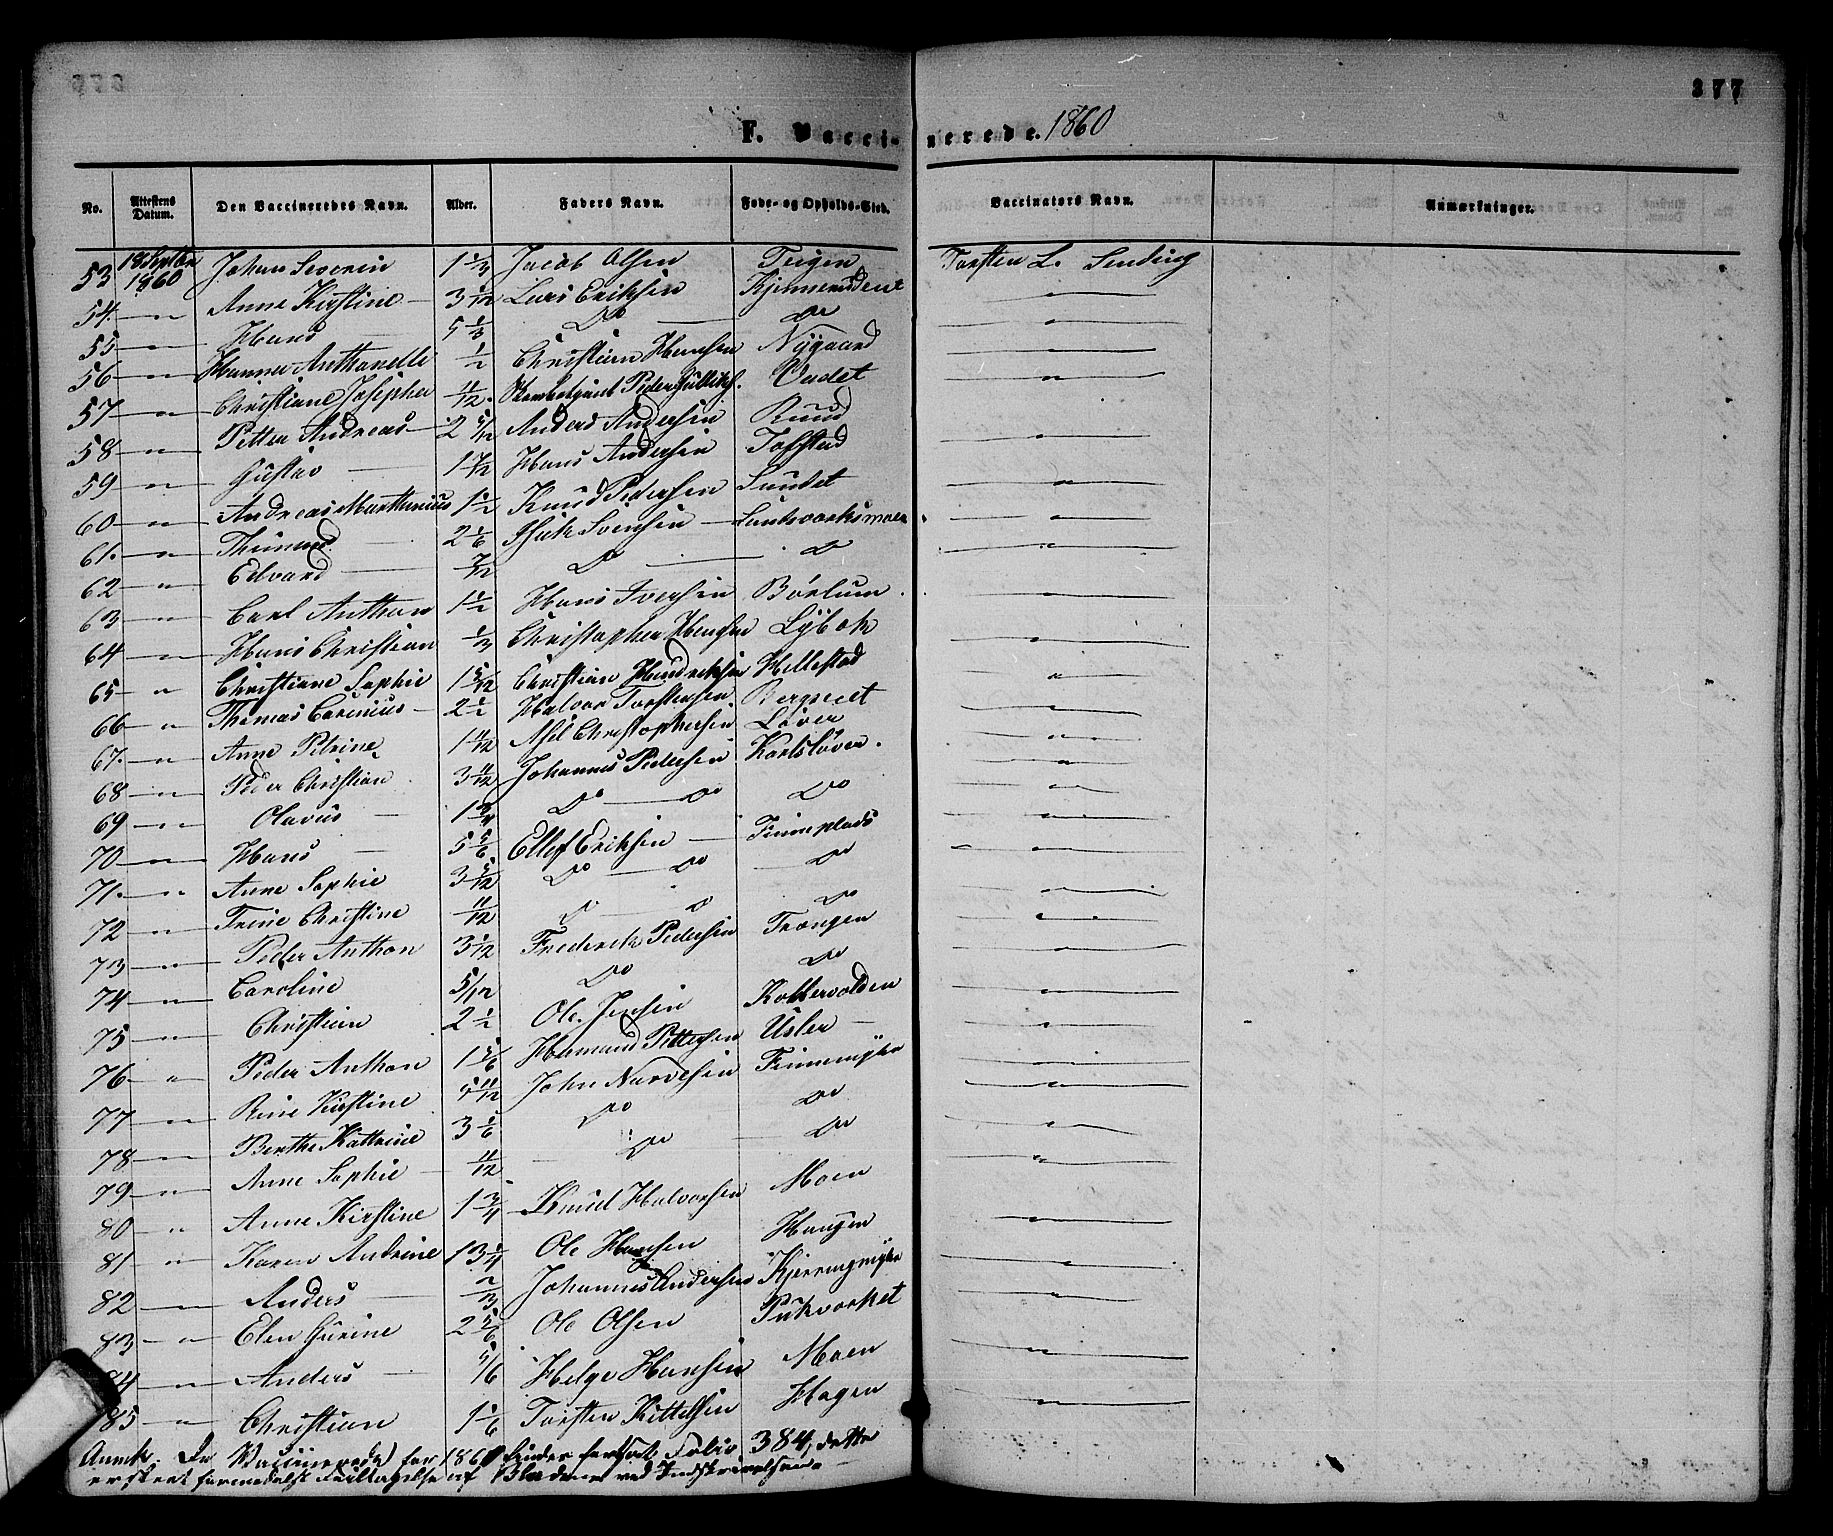 377
F. Vacci- nerede. 1860
No. Attestens Datum. Den Vaccineredes Navn. Alder. Faders Navn. Føde- og Opholds-Sted. Vaccinators Navn. Anmærkninger.
53 18 1860 Johan Severin 1 1/3 Jacob Olsen Teigen Torsten L. Sending
54. — " — Anne Kirstine — 3 1/12 Lars Eriksen — " —
55 — " — Hans 5 1/3 Do Do — " —
56 — " — Hanna Anthonelle 1/2 Christian Hansen Nygaard — " —
57 — " — Christiane Josepha 11/12 Vadet — " —
58 — " — Petter Andreas — 2 5/12 Anders Andersen Ruud
59 — " — Gustav — 1 7/12 Hans Andersen Tofstad — " —
60 — " — Andreas Marthinius 1 1/2 Knud Pedersen Sundet — " —
61. — " — 2 1/6 Isak Svensen — — " —
62 — " — Edvard — 7/12 Do — Do — " —
63 — " — Carl Anthon 1 1/2 Hans Iversen Børlum — " —
64 — " — Hans Christian 1/3 Christopher Lybek — " —
65 — " Christiane Sophie 1 5/12 Christian Hendriksen Hellestad — " —
66 — " Thomas Carinius — 2 1/2 Halvor Torstensen — " —
67. — " — Anne Petrine 1 11/12 Christophersen Løver — " —
68 — " — Peder Christian 3 11/12 Johannes Pedersen Karlsløver — " —
69 — " — Olavus — 1 3/4 Do — Do Do — " —
70 — " — Hans — 5 5/6 Ellef Eriksen — Finneplads — " —
71. — " Anne Sophie 3 5/12 Do — Do — Do — " —
72 — " — Trine Christine 11/12 Do — Do Do — " —
73 — " — Peder Anthon 3 1/12 Frederik Pedersen Trangen — " —
74 — " — Caroline 5/12 Do Do — " —
75 — " — Christian 2 1/2 Ole Jensen — " —
76 — " Peder Anthon 1 5/6 Hermand Pettersen Usler — — " —
77 — " — Rine Kirstine 5 11/12 John Narvesen Finnemyhr — " —
78 — " — Berthe Kathrine 3 1/6 Do Do — " —
79 — " — Anne Sophie — 11/12 Do — Do — " —
80 " Anne Kirstine 1 3/4 Knud Halvorsen Moen — " —
81 " Karen Andrine 13 1/4 Ole Hansen Haugen — " —
82 — " — Anders — 2/3 Johannes Andersen Kjerringmyhr — " —
83 — " Elen Gurine 2 5/6 Ole Olsen Pukværket — " —
84 — " — Anders — 5/6 Helge Hansen Moen — " —
85 — " Christian 1 1/6 Torsten Kittelsen Hagen — " —
Anmk. De Vaccinerede for 1860 findes fortsat Folio 384, dette
er skeet formedelst Feiltagelse af Bladene ved Indskrivelsen —